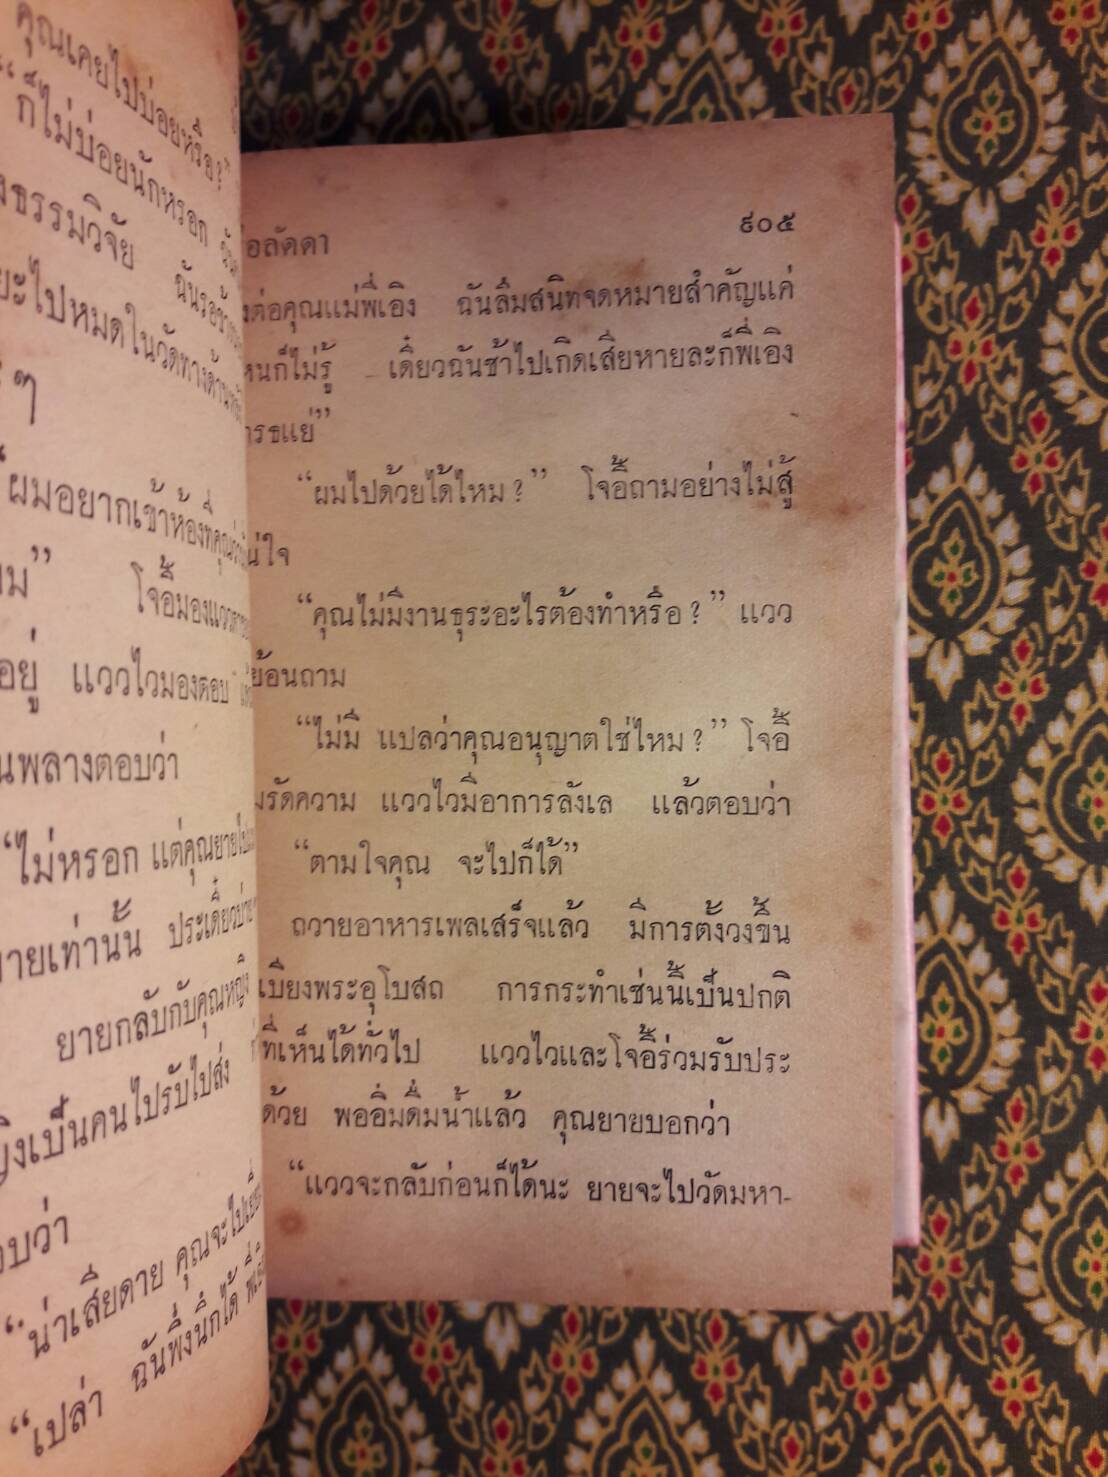 คุณเคยไปบ่อยหรือ?”
“ก็ไม่บ่อยนักหรอก
ธรรมวิจัย ฉันรอ
ยะไปหมดในวัดทางด้าน
ๆ
“ผมอยากเข้าห้องที่คุณ
โจอี้มองแวว
อยู่ แววไวมองตอบ
พลางตอบว่า
“ไม่หรอก แต่คุณยาย
ยายเท่านั้น ประเดี๋ยวบ่าย
ยายกลับกับคุณหญิง
เป็นคนไปรับไปส่ง
บว่า
“น่าเสียดาย คุณจะไป
“เปล่า ฉันพึ่งนึกได้
อลัดดา ๙๐๕
ต่อคุณแม่พี่เอิง ฉันลืมสนิทจดหมายสำคัญแค่
หนก็ไม่รู้ เดี๋ยวฉันช้าไปเกิดเสียหายละก็พี่เอิง
แย่”
“ผมไปด้วยได้ไหม?” โจอี้ถามอย่างไม่สู้
ใจ
“คุณไม่มีงานธุระอะไรต้องทำหรือ?” แวว
ย้อนถาม
“ไม่มี แปลว่าคุณอนุญาตใช่ไหม?” โจอี้
รัดความ แววไวมีอาการลังเล แล้วตอบว่า
“ตามใจคุณ จะไปก็ได้”
ถวายอาหารเพลเสร็จแล้ว มีการตั้งวงขึ้น
เบียงพระอุโบสถ การกระทำเช่นนี้เป็นปกติ
ที่เห็นได้ทั่วไป แววไวและโจอี้ร่วมรับประ
ด้วย พออิ่มดื่มน้ำแล้ว คุณยายบอกว่า
“แววจะกลับก่อนก็ได้นะ ยายจะไปวัดมหา-